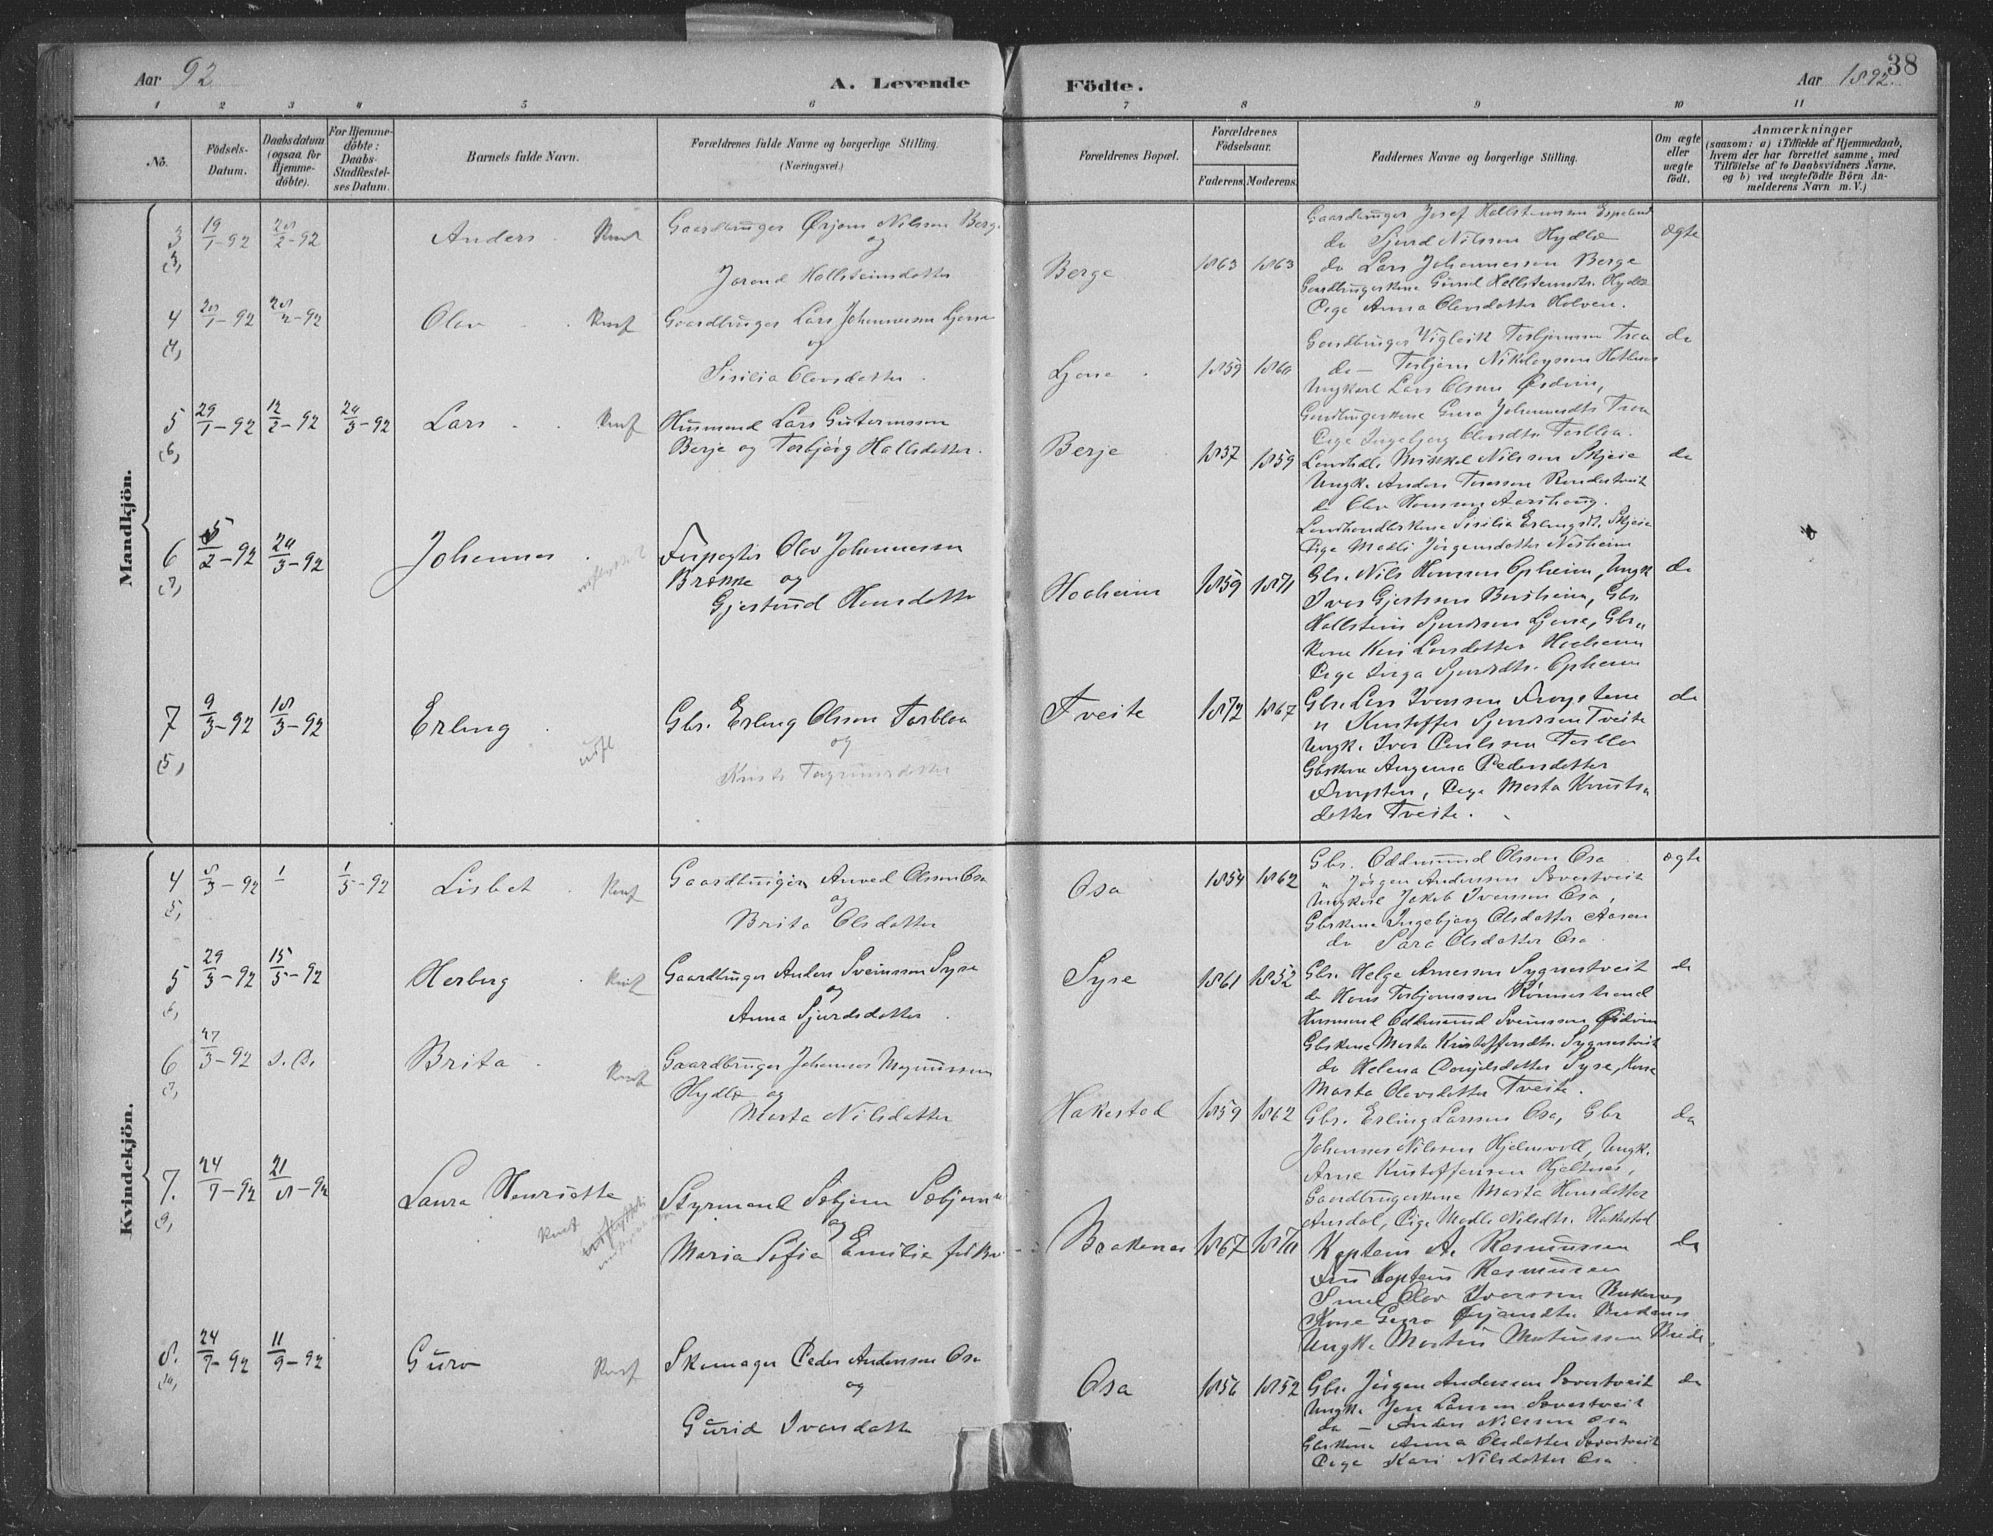 Aar 92
A. Levende Födte.
Aar 1892.
38
1 2 3 4 5 6 7 8 9 10 11
No.
Födsels-Datum.
Daabsdatum (ogsaa for Hjemme-döbte).
For Hjemme-döbte: Daabs-Stadfæstel-ses Datum.
Barnets fulde Navn.
Forældrenes fulde Navne og borgerlige Stilling. (Næringsvei.)
Forældrenes Bopæl.
Forældrenes Födselsaar.
Faderens. Moderens.
Faddernes Navne og borgerlige Stilling.
Om ægte eller uægte födt.
Anmærkninger
(saasom: a) i Tilfælde af Hjemmedaab,
hvem der har forrettet samme, med
Tilföielse af to Daabsvidners Navne,
og b) ved uægtefödte Börn An-
melderens Navn m. V.)
Mandkjön.
3 (3) 19/1-92 28/2-92 Anders Konf
Gaardbruger Ørjans Nilssen Berge
og
Jorond Hallsteinsdatter
Berge 1863 1863
Gaardbruger Josef Hallsteinsen Espeland
do Sjurd Nilssen Hydle
do Lars Johannessen Berge
Gaardbrugerkone Gunild Hallsteinsdtr. Hydle
Pige Anna Olavsdatter Holven.
ægte
4 (4) 28/1-92 28/2-92 Olav Konf
Gaardbruger Lars Johannessen Ljone
og
Sisilia Olavsdatter.
Ljone 1859 1860
Gaardbruger Vigleik Torbjørnsen Traa
do - Torbjørn Nikolayssen
Ungkarl Lars Olsen Øydvin,
Gaardbrugerkone Guro Johannesdtr Traa
Pige Ingebjorg Olavsdtr. Torblaa.
do
5 (6) 29/1-92 12/2-92 24/3-92 Lars Konf
Husmand Lars Guttormssen
Berje og Torbjørg Hallsdatter.
Berje 1857 1859
Landhdl. Mikkel Nilssen Skjeie
Ungk. Anders Rondestveit
do Olav Hanssen Aarhoug.
Landhandlerkone Sisilia Erlingsdtr. Skjeie
Pige Madli Jørgensdatter Nesheim
do
6 (7) 5/2-92 24/3-92 Johannes
Forpagter Olav Johannessen
og
Gjertrud Hansdatter
Hocheim 1859 1871
Gbr. Nils Hanssen Opheim, Ungk
Ivar Gjertssen Bursheim, Gbr.
Hallstein Sjurdssen Ljone, Gbr.
kone Kari Larsdatter Hocheim
Pige Inga Sjurdsdtr. Opheim
do
7 (5) 9/3-92 18/3-92 Erling utfl
Gbr. Erling Olsson Torblaa
og
Kristi Torgrimsdatter
Tveite 1872 1867
Gbr. Lars Ivarssen Frøysten
" Kristoffer Sjurdssen Tveite
Ungk. Ivar Paulssen Torblaa
Gbrkone Angunna Pedersdatter
Frøysten, Pige Marta Knuts-
datter Tveite.
do
Kvindekjön.
4 (5) 8/3-92 1/ 1/5-92 Lisbet Konf
Gaardbruger Anved Olsson Osa
og
Brita Olsdatter
Osa 1854 1862
Gbr. Oddmund Olsson Osa
" Jørgen Anderssen Sævertveit
Ungkarl Jakob Iverssen Osa,
Gbrkone Ingebjorg Olsdatter Aasen
do Sara Olsdatter Osa.
ægte
5 29/3-92 15/5-92 Herborg Konf
Gaardbruger Anders Sveinssen Syse
og
Anna Sjurdsdatter.
Syse 1861 1852
Gbr. Helge Arnessen Sygnestveit
do Hans Torbjørnssen Rønnestrand
Husmand Oddmund Sveinssen Øydvin
Gbrkone Marta Kristoffersdtr. Sygnestveit
do Helena Syse, Kone
Marta Olavsdatter Tveite.
do
6 (7) 27/3-92 s. D. Brita Konf
Gaardbruger Johannes Magnussen
Hydle og
Marta Nilsdatter
Hakestad 1859 1862
Gbr. Erling Larssen Osa, Gbr
Johannes Nilssen Hjelmvoll, Ungk.
Arne Kristoffersen Hjeltnes,
Gaardbrugerkone Marta Hansdatter
Ausdal, Pige Madli Nilsdtr. Hakestad
do
7. (9) 24/7-92 21/8-92 Laura Henriette Konf utflyttet
Styrmand Sæbjørn Sæbjørn
og
Maria Sofia Emilie
Brakenæs 1867 1870
Kaptein A. Rasmussen
Fru Kaptein Rasmussen
Smed Olav Iverssen Brakenæs
Kone Guro Ørjansdtr. Brakenes
Ungk. Martin
do
8. (10) 24/7-92 11/9-92 Guro Konf
Skomager Peder Anderssen Osa
og
Gurid Ivarsdatter
Osa 1856 1852
Gbr. Jørgen Anderssen Sævertveit
Ungk. Jon Larssen Sævertveit
do - Anders Nilssen Osa
Gbrkone Anna Olsdatter Sævertveit
Pige Kari Nilsdatter Osa
do